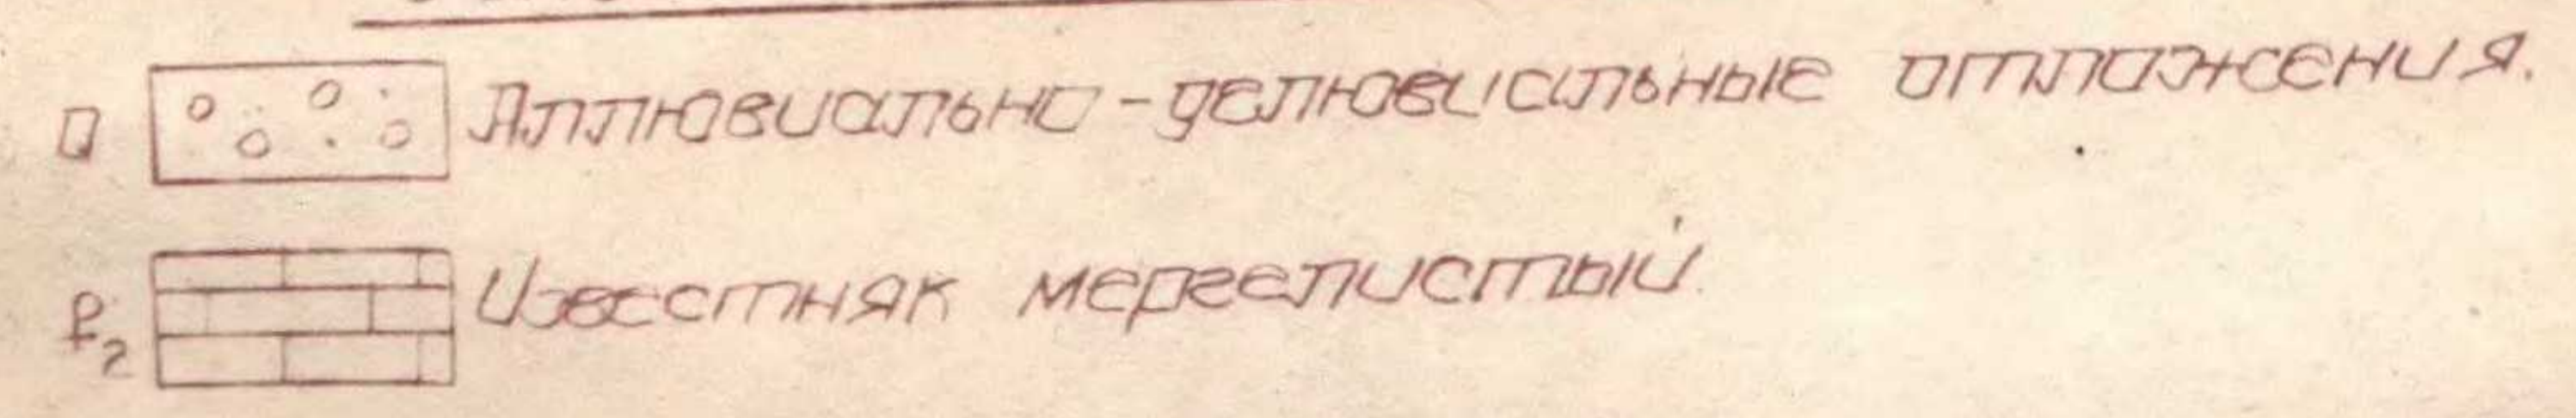 Q Аллювиально-делювиальные отложения.
₽₂ Известняк мергелистый.